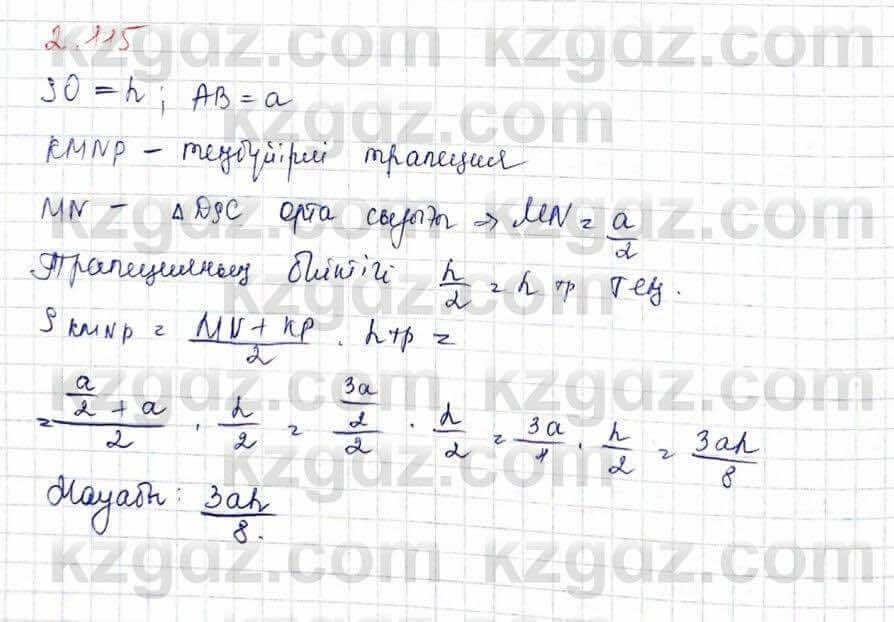 2.115
SO = h; AB = a
KMNP – теңбүйірлі трапеция
MN – △DSC орта сызығы ⇒ MN = a/2
Трапецияның биіктігі h/2 = h тр тең.
S KMNP = (MN + KP)/2 · hтр =
= (a/2 + a)/2 · h/2 = (3a/2)/2 · h/2 = 3a/4 · h/2 = 3ah/8
Жауабы: 3ah/8.
kzgdz.com kzgdz.com
kzgdz.com
kzgdz.com kzgdz.com
kzgdz.com
kzgdz.com kzgdz.com
kzgdz.com
kzgdz.com kzgdz.com